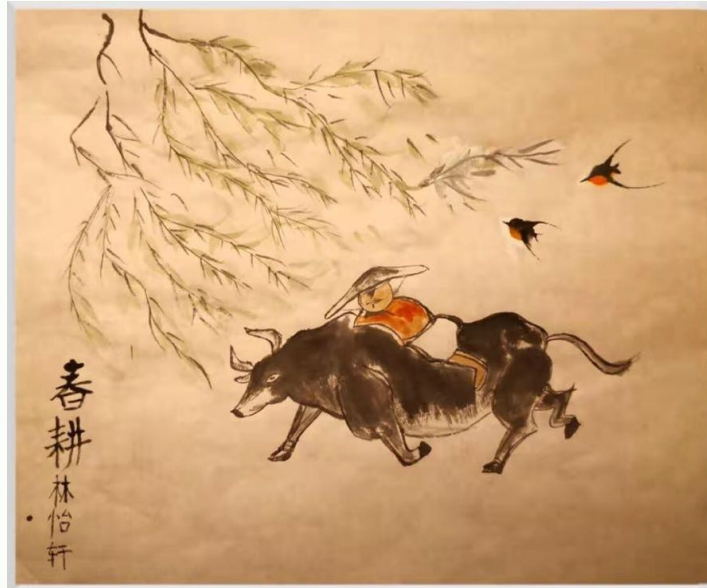 春耕
林怡轩